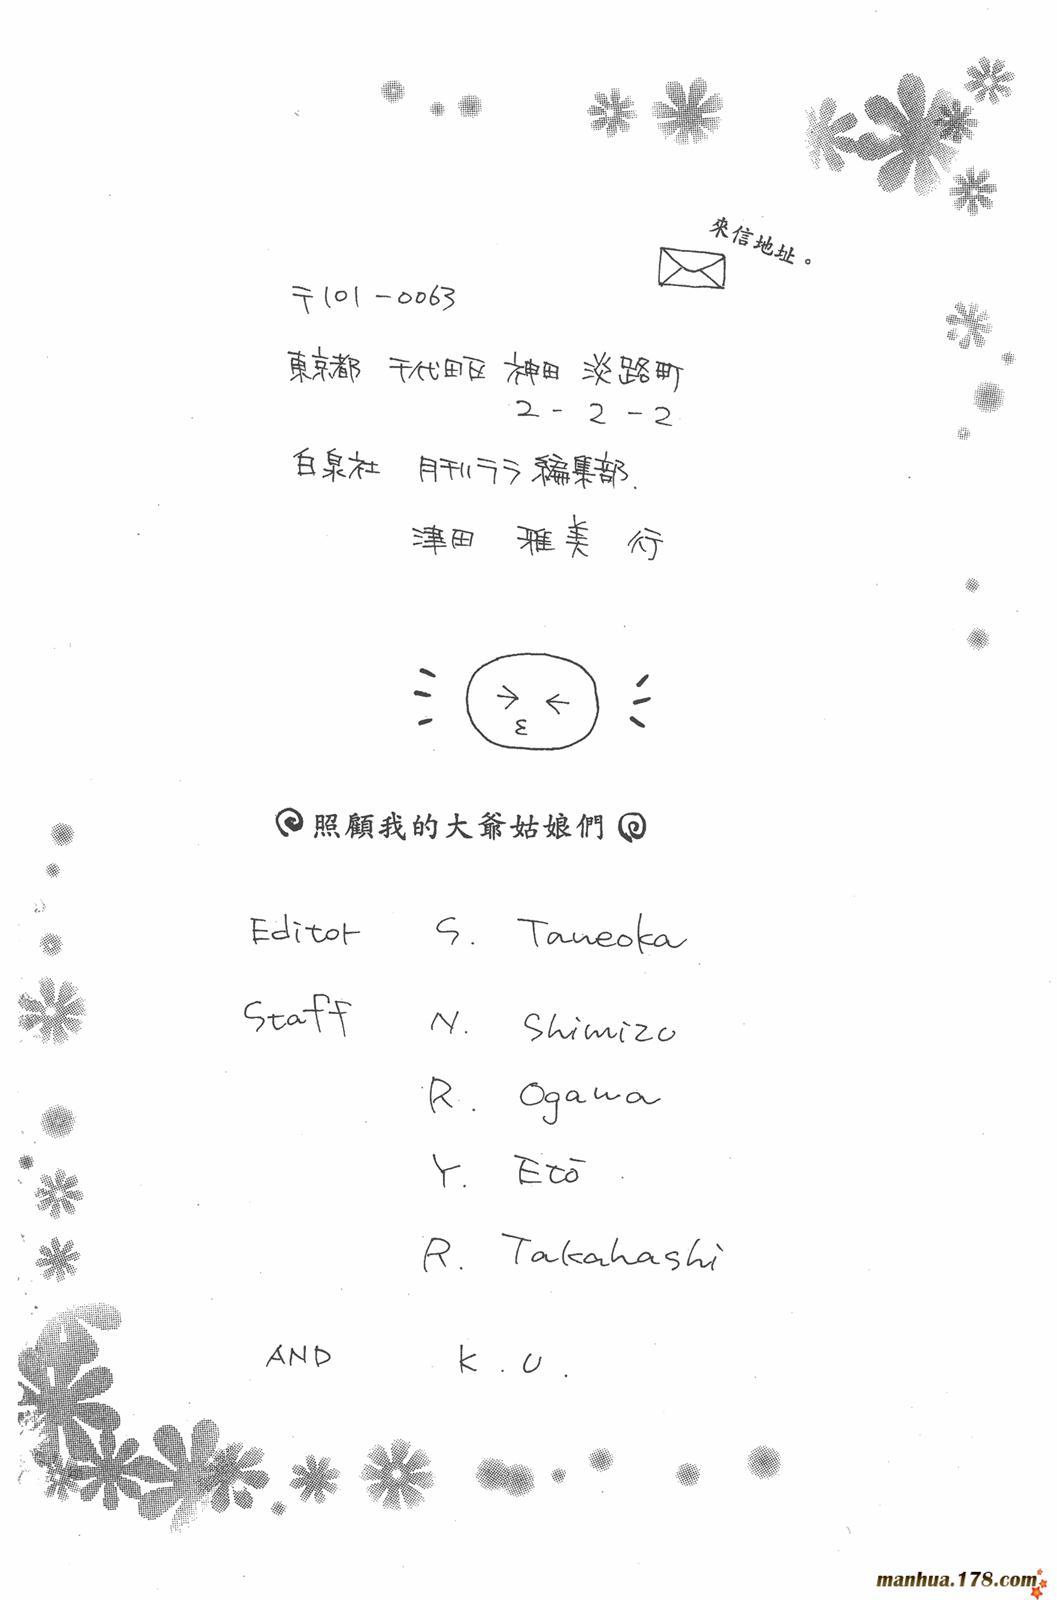 來信地址。
〒101-0063
東京都 千代田区 神田 淡路町
2-2-2
白泉社 月刊ララ編集部.
津田 雅美 行
照顧我的大爺姑娘們
Editor S. Taneoka
Staff N. Shimizu
R. Ogawa
Y. Etō
R. Takahashi
AND K.U.
manhua.178.com